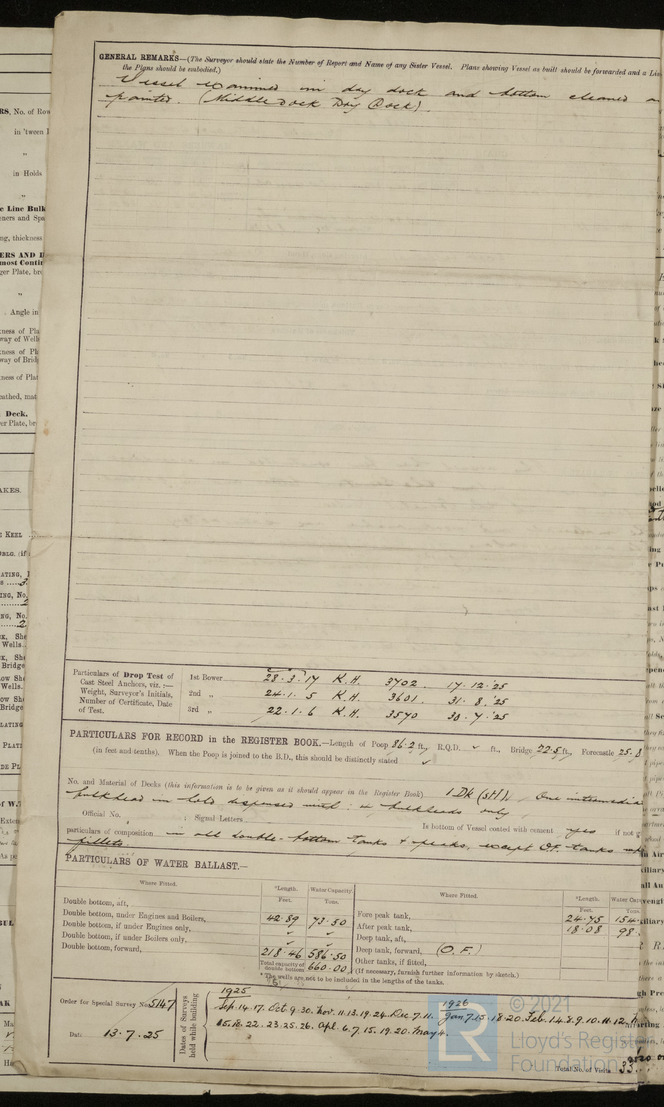 GENERAL REMARKS—(The Surveyor should state the Number of Report and Name of any Sister Vessel. Plans showing Vessel as built should be forwarded and a
the Plans should be embodied.)
Vessel examined in dry dock and bottom cleaned
painted. (Middle Dock Dry Dock).
Particulars of Drop Test of
Cast Steel Anchors, viz.:—
Weight, Surveyor's Initials,
Number of Certificate, Date
of Test.
1st Bower 28.3.17 K.H. 3702. 17.12.25
2nd „ 24.1.5 K.H. 3601. 31.8.'25
3rd „ 22.1.6 K.H. 3570 30.7.'25
PARTICULARS FOR RECORD in the REGISTER BOOK.—Length of Poop 36.2 ft., R.Q.D. ✓ ft., Bridge 72.5 ft., Forecastle 25.8
(in feet and tenths). When the Poop is joined to the B.D., this should be distinctly stated ✓
No. and Material of Decks (this information is to be given as it should appear in the Register Book) 1 Dk (stl), One intermediate
bulkhead in hold dispensed with: bulkheads only,
Official No. ; Signal Letters Is bottom of Vessel coated with cement yes if not
particulars of composition in all double-bottom tanks & peaks, except O.F. tanks
fillets.
PARTICULARS OF WATER BALLAST.—
Where Fitted. *Length. Water Capacity. Where Fitted. *Length. Water
Feet. Tons. Feet. Tons.
Double bottom, aft,
Double bottom, under Engines and Boilers, 42.89 73.50
Double bottom, if under Engines only, ✓ ✓
Double bottom, if under Boilers only, ✓ ✓
Double bottom, forward, 218.46 586.50
Total capacity of double bottom 660.00
Fore peak tank, 24.75 154.
After peak tank, 18.08 98.
Deep tank, aft,
Deep tank, forward, (O.F.)
Other tanks, if fitted,
(If necessary, furnish further information by sketch.)
*The wells are not to be included in the lengths of the tanks.
Order for Special Survey No. 5147
Date 13.7.25
Dates of Surveys held while building
1925
Sep. 14. 17. Oct. 9. 30. Nov. 11. 13. 19. 24. Dec. 7. 11.
1926
Jan. 7. 15. 18. 20. Feb. 1. 4. 8. 9. 10. 11. 12.
15. 18. 22. 23. 25. 26. Apl. 6. 7. 15. 19. 20. May 4.
Total No. of Visits 33
© 2021
Lloyd's Register
Foundation